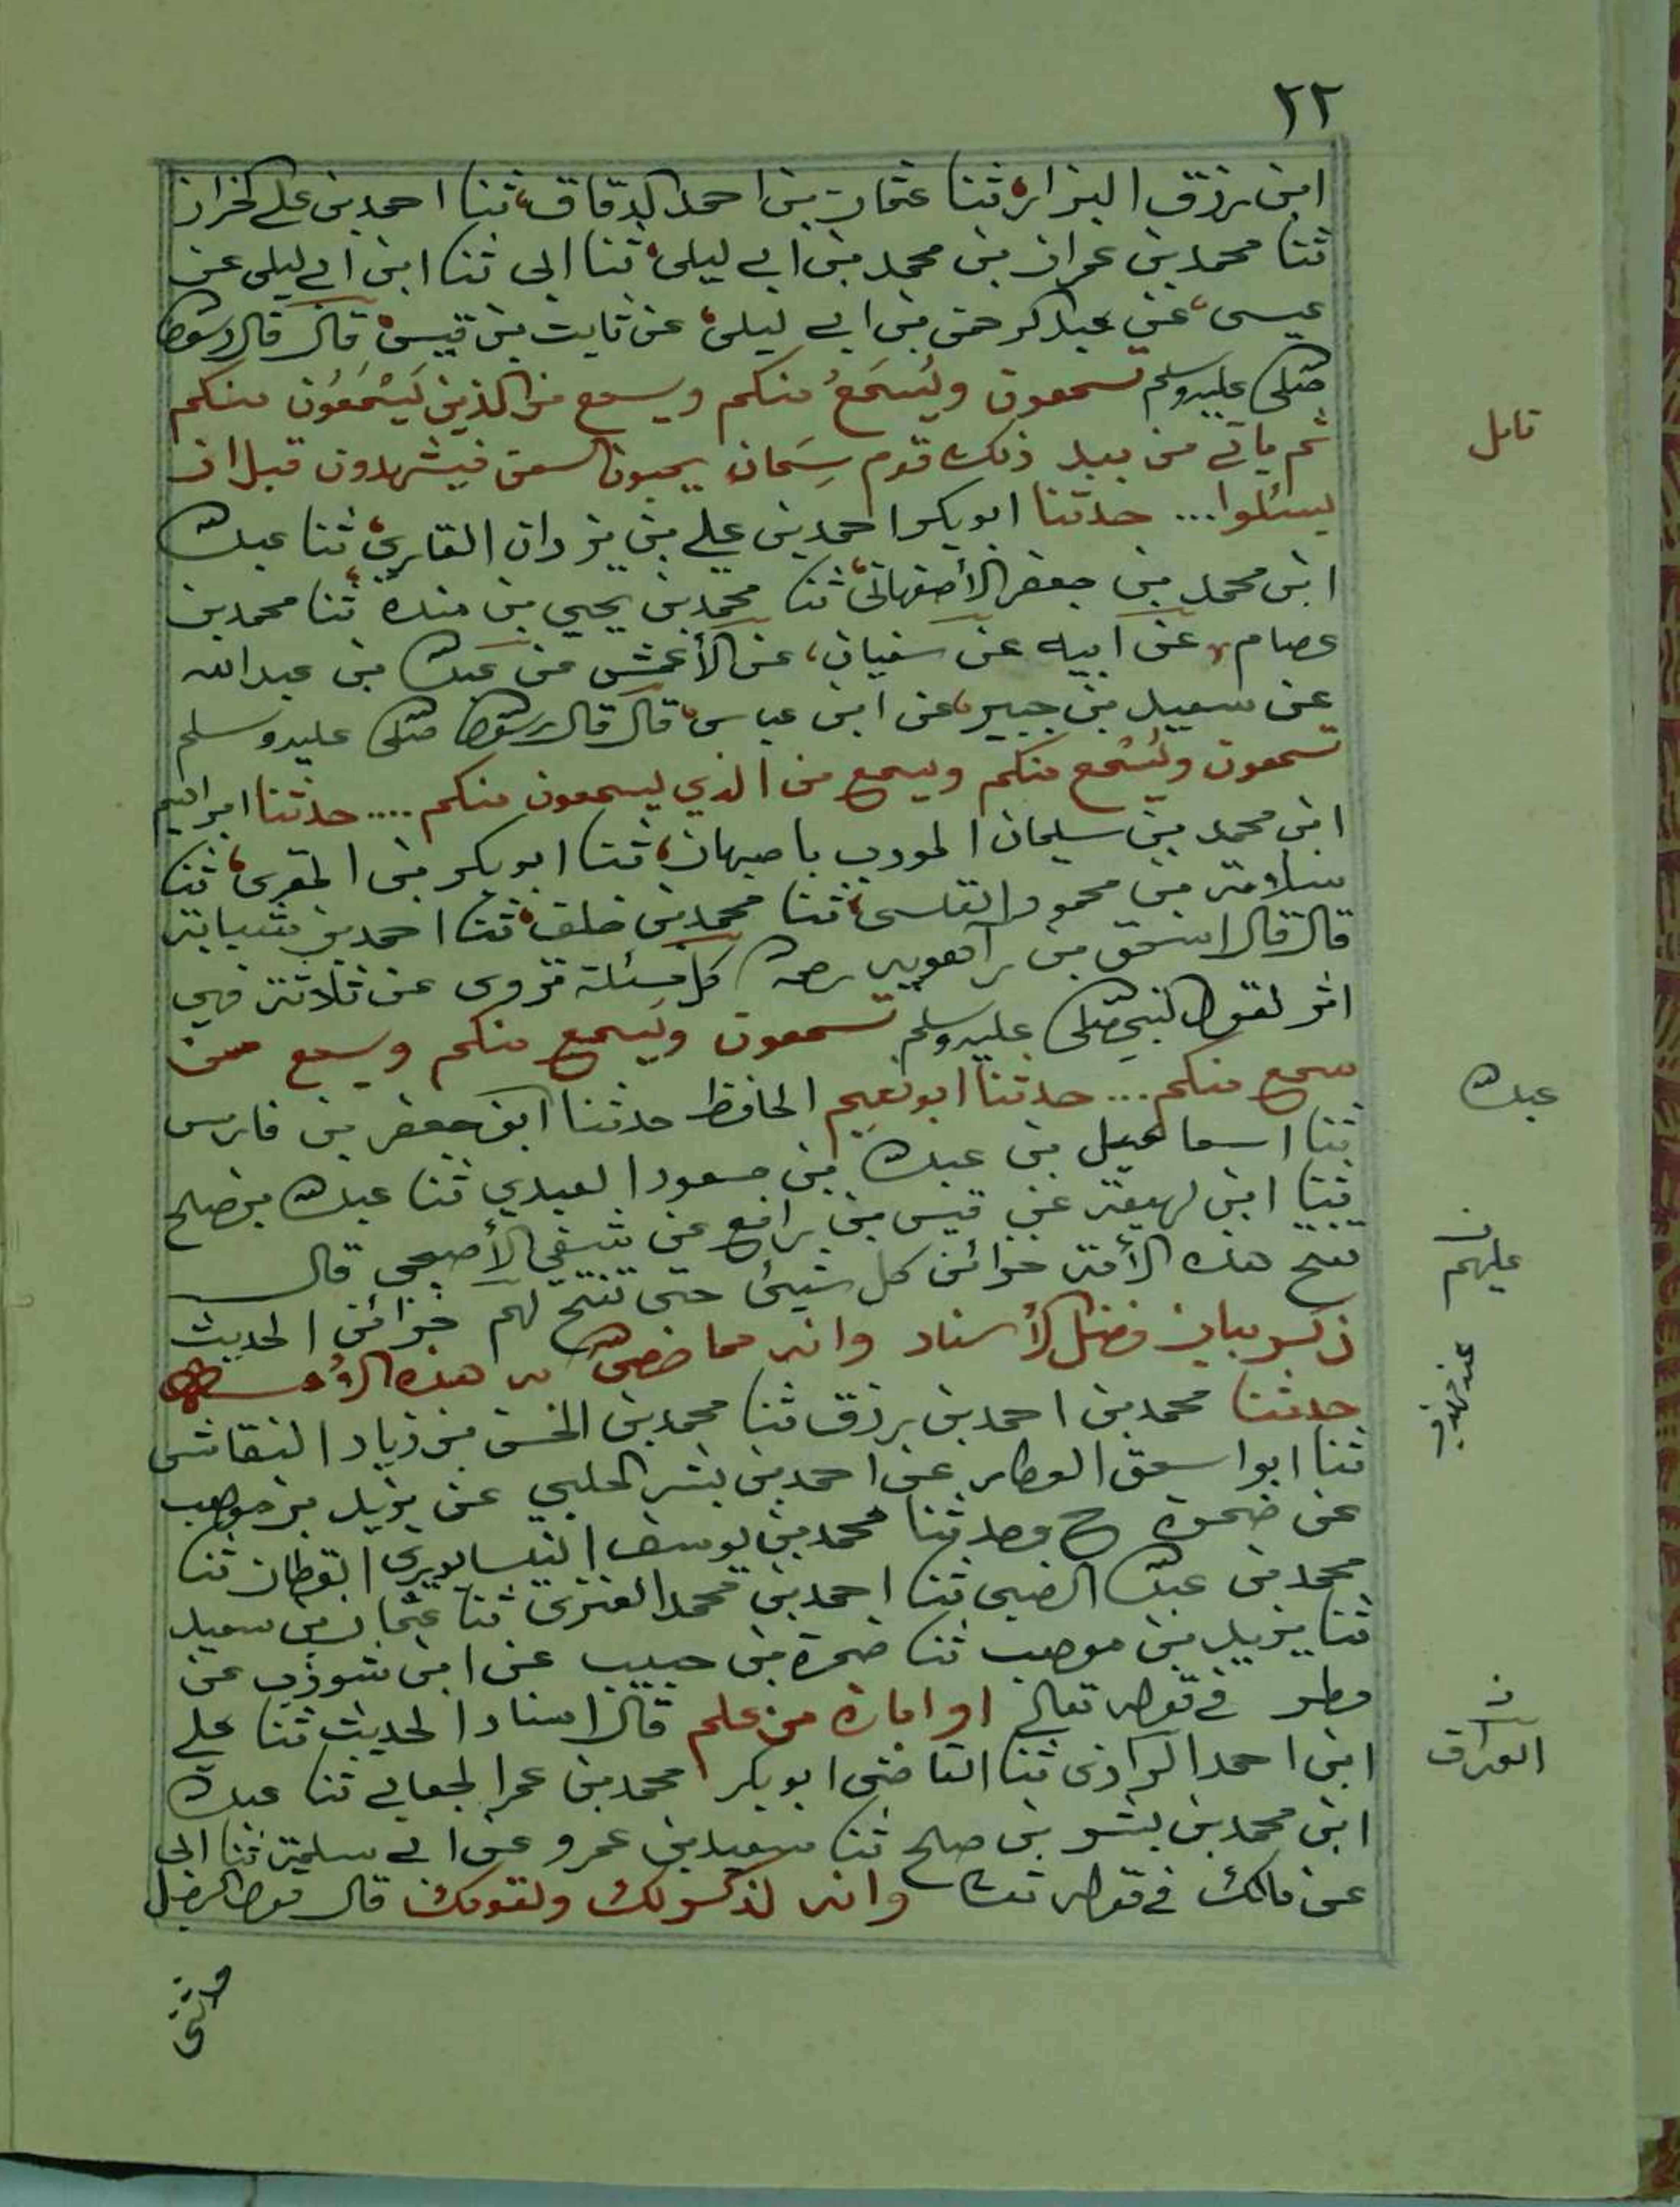 ٢٢
ابن رزق البزاز ثنا عثمان بن احمد الدقاق، ثنا احمد بن علي الخراز
ثنا محمد بن عمران بن محمد بن ابي ليلى، ثنا ابي ثنا ابن ابي ليلى عن
عيسى، عن عبد الرحمن بن ابي ليلى، عن ثابت بن قيس، قال قال رسول الله
صلى الله عليه وسلم تسمعون ويُسمَعُ منكم ويسمع من الذين يَسْمَعُون منكم
ثم ياتي من بعد ذلك قوم سِمَان يحبون السمن فيشهدون قبل ان
يسئلوا... حدثنا ابو بكر احمد بن علي بن يزدان القاري، ثنا عبد الله
ابن محمد بن جعفر الأصفهانى، ثنا محمد بن يحيي بن مندة، ثنا محمد بن
عصام، عن ابيه عن سفيان، عن الأعمش عن عبد الله بن عبد الله
عن سعيد بن جبير، عن ابن عباس، قال قال رسول الله صلى الله عليه وسلم
تسمعون ويُسْمع منكم ويسمع من الذي يسمعون منكم .... حدثنا ابراهيم
ابن محمد بن سليمان المودب باصبهان، ثنا ابو بكر بن المقرى، ثنا
سلامة بن محمود القلسى، ثنا محمد بن خلف، ثنا احمد بن شبابة
قال قال اسحق بن راهويه رحمه الله كل مسئلة تروى عن ثلاثة فهي
اثر لقول النبي صلى الله عليه وسلم تسمعون ويسمع منكم ويسمع ممن
سمع منكم... حدثنا ابو نعيم الحافظ حدثنا ابن جعفر بن فارس
ثنا اسماعيل بن عبد الله بن مسعود العبدي ثنا عبد الله بن صلح
ثنا ابن لهيعة عن قيس بن رافع عن شفي الأصبحي قال
تفتح هذه الأمة خزائن كل شيئ حتى تفتح لهم خزائن الحديث
ذكر بيان فضل الأسناد وانه مما خص الله به هذه الأمة
حدثنا محمد بن احمد بن رزق ثنا محمد بن الحسن بن زياد النقاش
ثنا ابو اسحق العطار عن احمد بن بشر الحلبي عن يزيد بن موهب
عن ضمرة ح وحدثنا محمد بن يوسف النيسابوري القطان ثنا
محمد بن عبد الله الضبى ثنا احمد بن محمد العنزى ثنا عثمان بن سعيد
ثنا يزيد بن موهب ثنا ضمرة بن حبيب عن ابن شوذب عن
مطر في قوله تعالى او اثارة من علم قال اسناد الحديث ثنا علي
ابن احمد الرازى ثنا القاضى ابو بكر محمد بن عمر الجعابي ثنا عبد الله
ابن محمد بن بشر بن صلح ثنا سعيد بن عمرو عن ابي سلمة ثنا ابي
عن مالك في قوله تعالى وانه لذكر لك ولقومك قال قول الرجل
حدثنى
تامل
عبد الله
عليهم
العراق